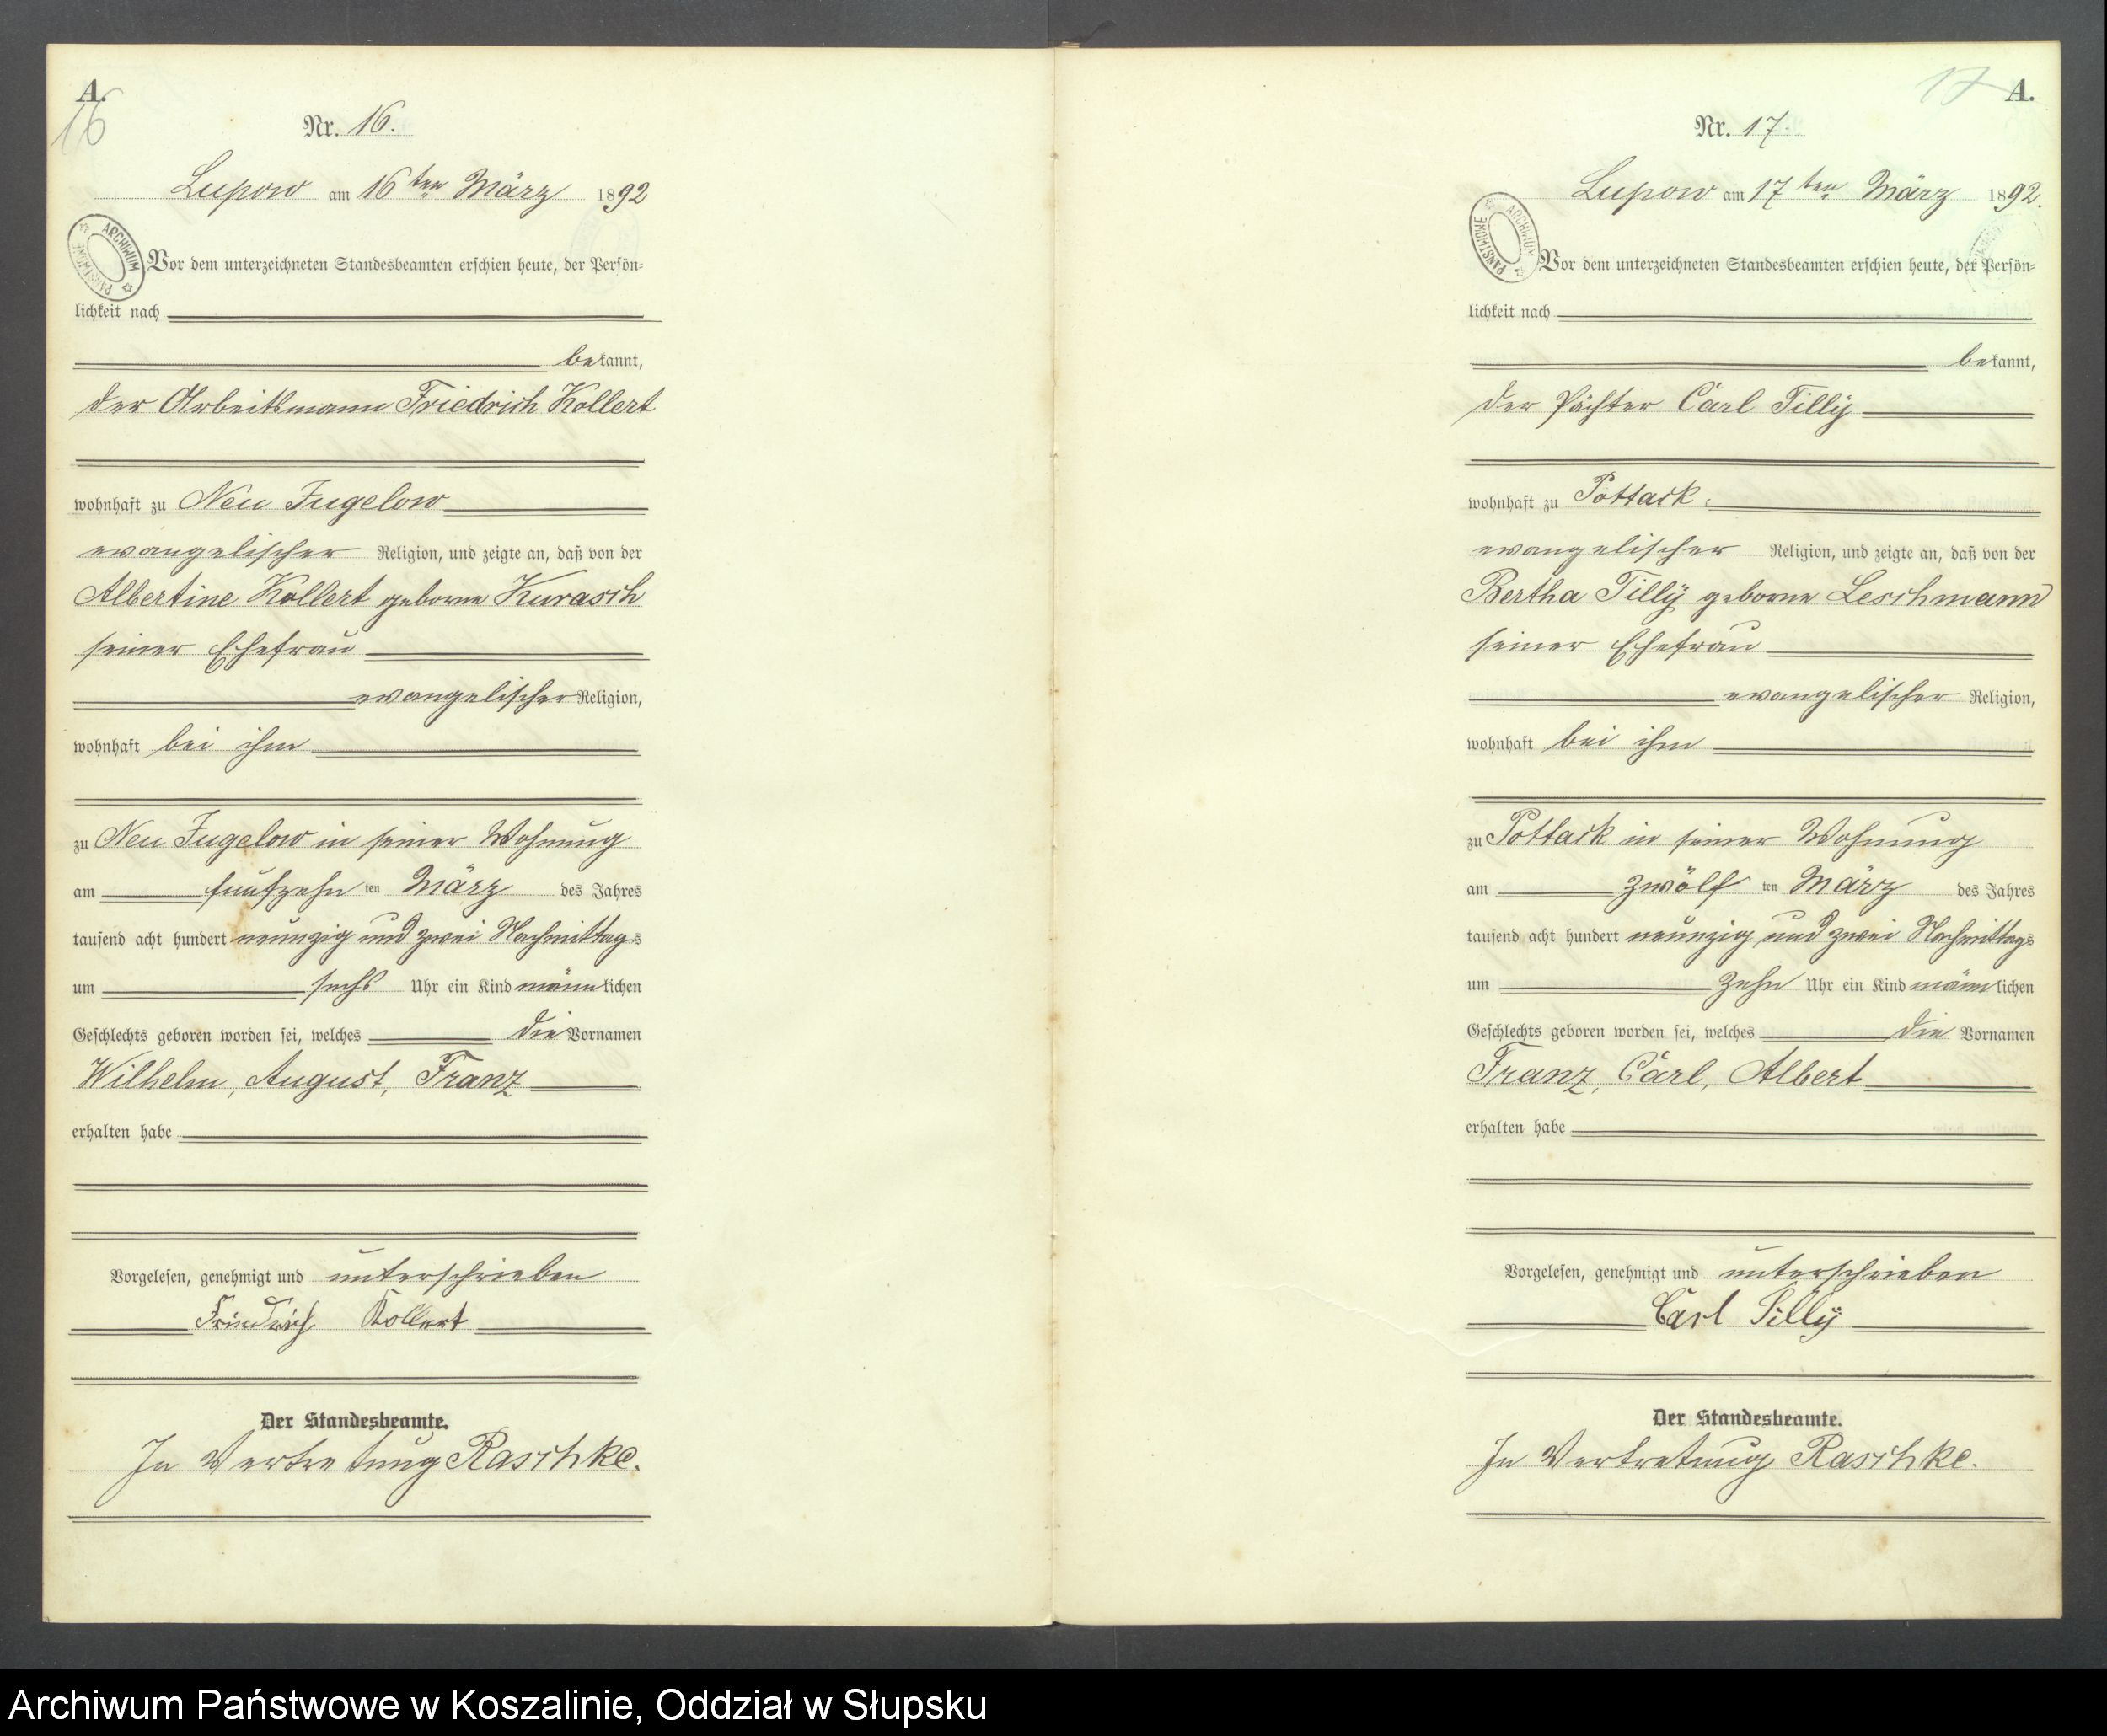 A.
16
Nr. 16.
Lupow am 16ten März 1892
ARCHIWUM PAŃSTWOWE
Vor dem unterzeichneten Standesbeamten erschien heute, der Persön-
lichkeit nach
bekannt,
der Arbeitsmann Friedrich Kollert
wohnhaft zu Neu Jugelow
evangelischer Religion, und zeigte an, daß von der
Albertine Kollert geborne Kurasch
seiner Ehefrau
evangelischer Religion,
wohnhaft bei ihm
zu Neu Jugelow in seiner Wohnung
am fünfzehn ten März des Jahres
tausend acht hundert neunzig und zwei Nachmittags
um sechs Uhr ein Kind männlichen
Geschlechts geboren worden sei, welches die Vornamen
Wilhelm, August, Franz
erhalten habe
Vorgelesen, genehmigt und unterschrieben
Friedrich Kollert
Der Standesbeamte.
In Vertretung Raschke.
17 A.
Nr. 17.
Lupow am 17ten März 1892.
ARCHIWUM PAŃSTWOWE
Vor dem unterzeichneten Standesbeamten erschien heute, der Persön-
lichkeit nach
bekannt,
der Pächter Carl Tilly
wohnhaft zu Pottack
evangelischer Religion, und zeigte an, daß von der
Bertha Tilly geborne Leschmann
seiner Ehefrau
evangelischer Religion,
wohnhaft bei ihm
zu Pottack in seiner Wohnung
am zwölf ten März des Jahres
tausend acht hundert neunzig und zwei Nachmittags
um zehn Uhr ein Kind männlichen
Geschlechts geboren worden sei, welches die Vornamen
Franz, Carl, Albert
erhalten habe
Vorgelesen, genehmigt und unterschrieben
Carl Tilly
Der Standesbeamte.
In Vertretung Raschke.
Archiwum Państwowe w Koszalinie, Oddział w Słupsku